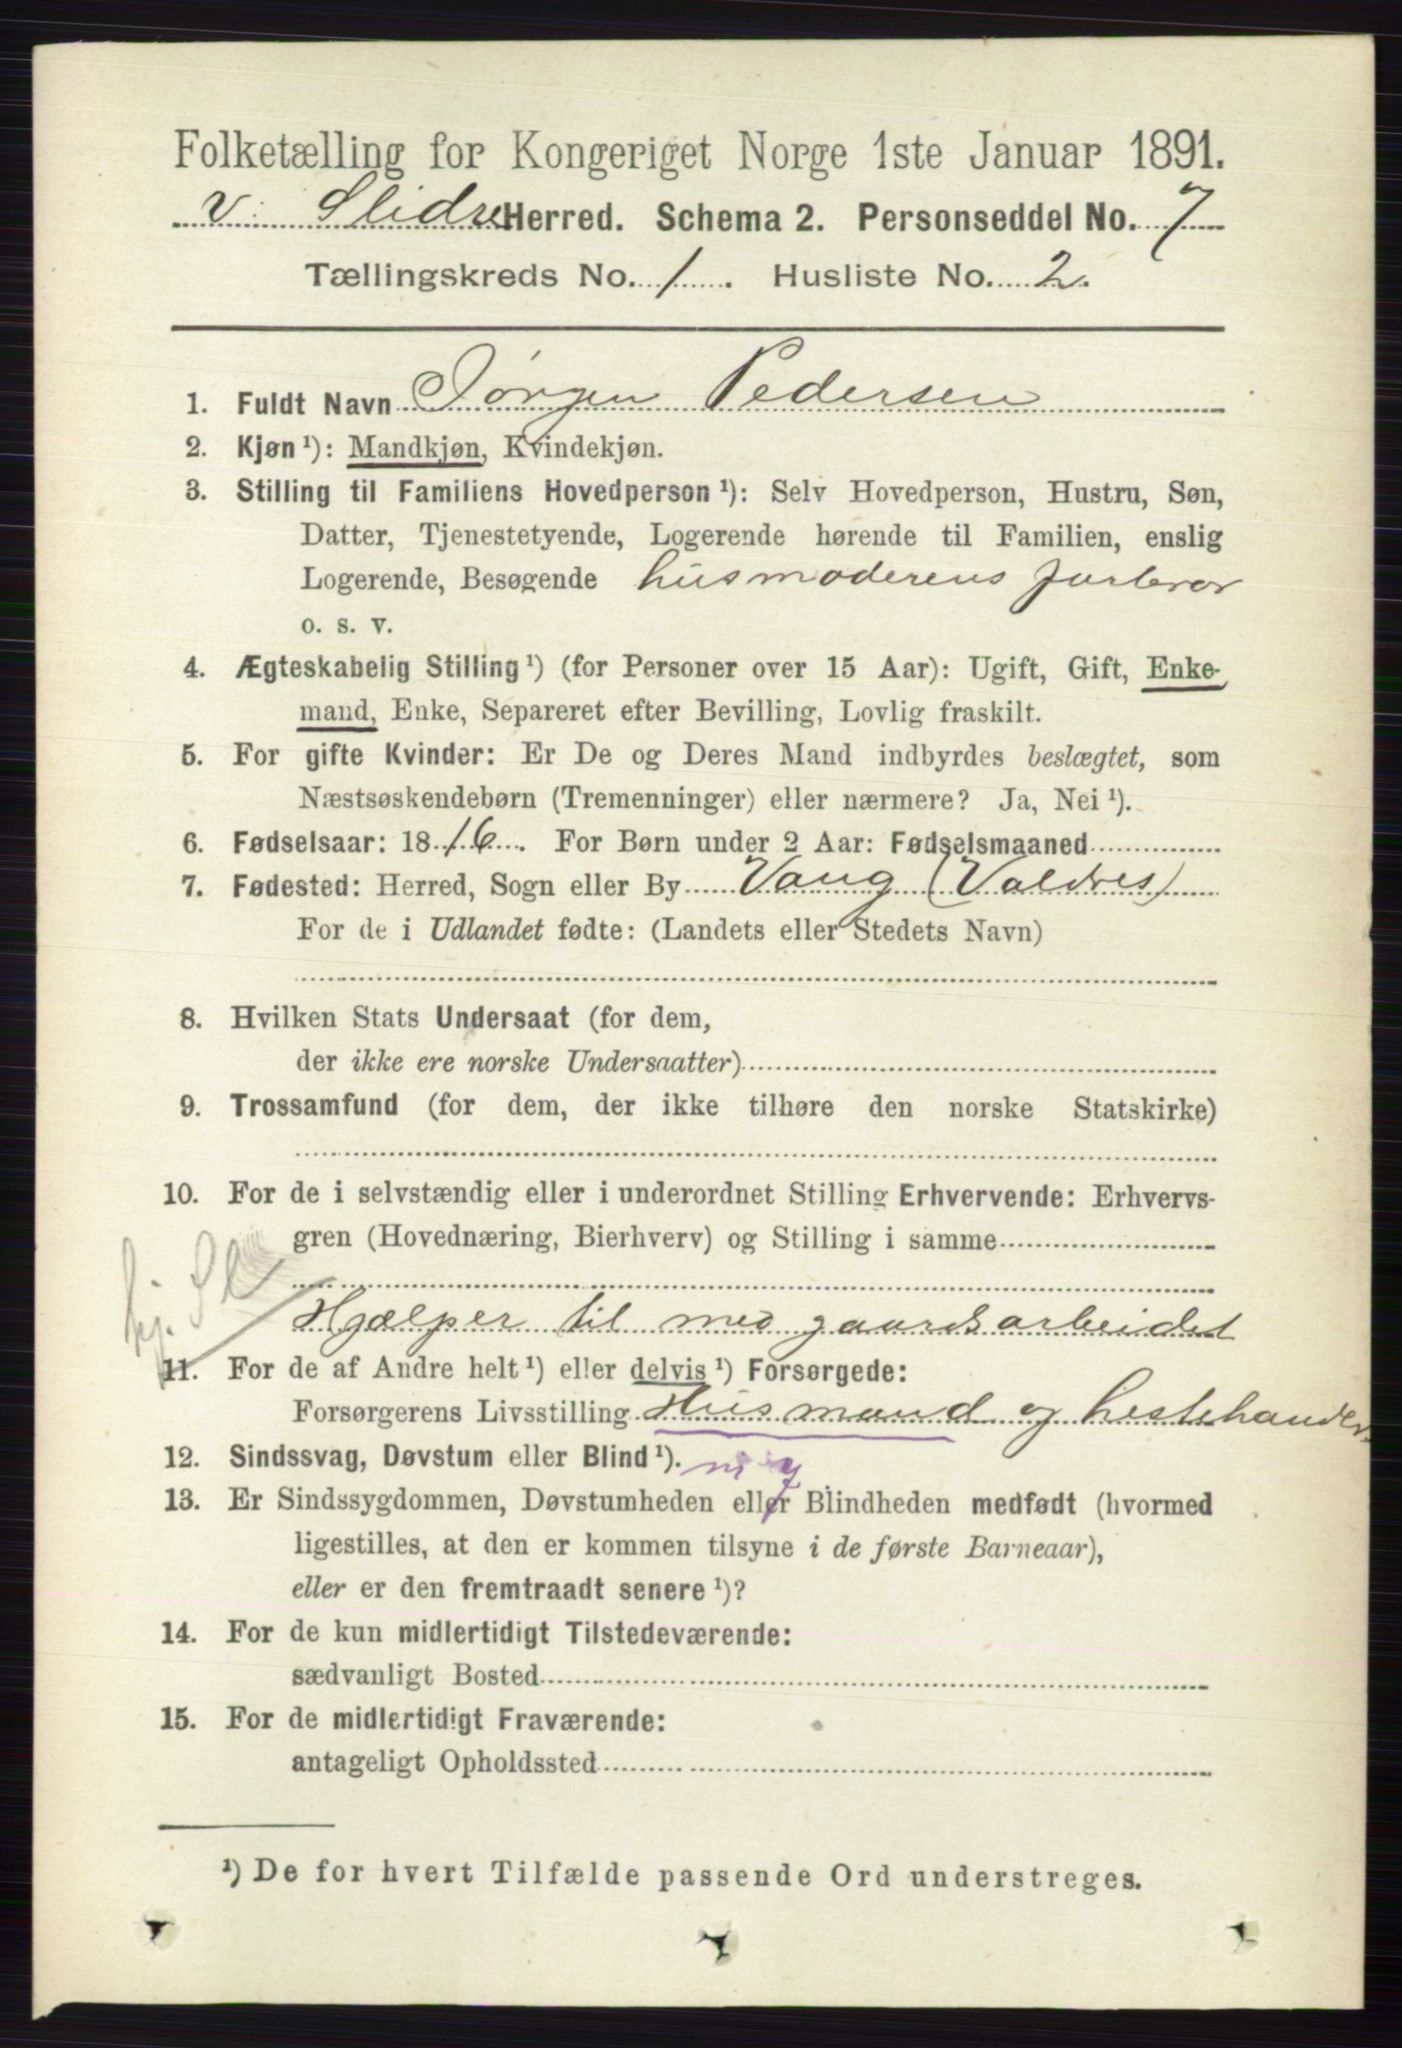 Folketælling for Kongeriget Norge 1ste Januar 1891.
V. Slidre Herred. Schema 2. Personseddel No. 7
Tællingskreds No. 1. Husliste No. 2.
1. Fuldt Navn Jørgen Pedersen
2. Kjøn ¹): Mandkjøn, Kvindekjøn.
3. Stilling til Familiens Hovedperson ¹): Selv Hovedperson, Hustru, Søn,
Datter, Tjenestetyende, Logerende hørende til Familien, enslig
Logerende, Besøgende husmoderens farbror
o. s. v.
4. Ægteskabelig Stilling ¹) (for Personer over 15 Aar): Ugift, Gift, Enke-
mand, Enke, Separeret efter Bevilling, Lovlig fraskilt.
5. For gifte Kvinder: Er De og Deres Mand indbyrdes beslægtet, som
Næstsøskendebørn (Tremenninger) eller nærmere? Ja, Nei ¹).
6. Fødselsaar: 1816. For Børn under 2 Aar: Fødselsmaaned
7. Fødested: Herred, Sogn eller By Vang (Valdres)
For de i Udlandet fødte: (Landets eller Stedets Navn)
8. Hvilken Stats Undersaat (for dem,
der ikke ere norske Undersaatter)
9. Trossamfund (for dem, der ikke tilhøre den norske Statskirke)
10. For de i selvstændig eller i underordnet Stilling Erhvervende: Erhvervs-
gren (Hovednæring, Bierhverv) og Stilling i samme
Hjælper til med gaardsarbeidet
11. For de af Andre helt ¹) eller delvis ¹) Forsørgede:
Forsørgerens Livsstilling Husmand og hestehandler
12. Sindssvag, Døvstum eller Blind ¹).
13. Er Sindssygdommen, Døvstumheden eller Blindheden medfødt (hvormed
ligestilles, at den er kommen tilsyne i de første Barneaar),
eller er den fremtraadt senere ¹)?
14. For de kun midlertidigt Tilstedeværende:
sædvanligt Bosted
15. For de midlertidigt Fraværende:
antageligt Opholdssted
¹) De for hvert Tilfælde passende Ord understreges.